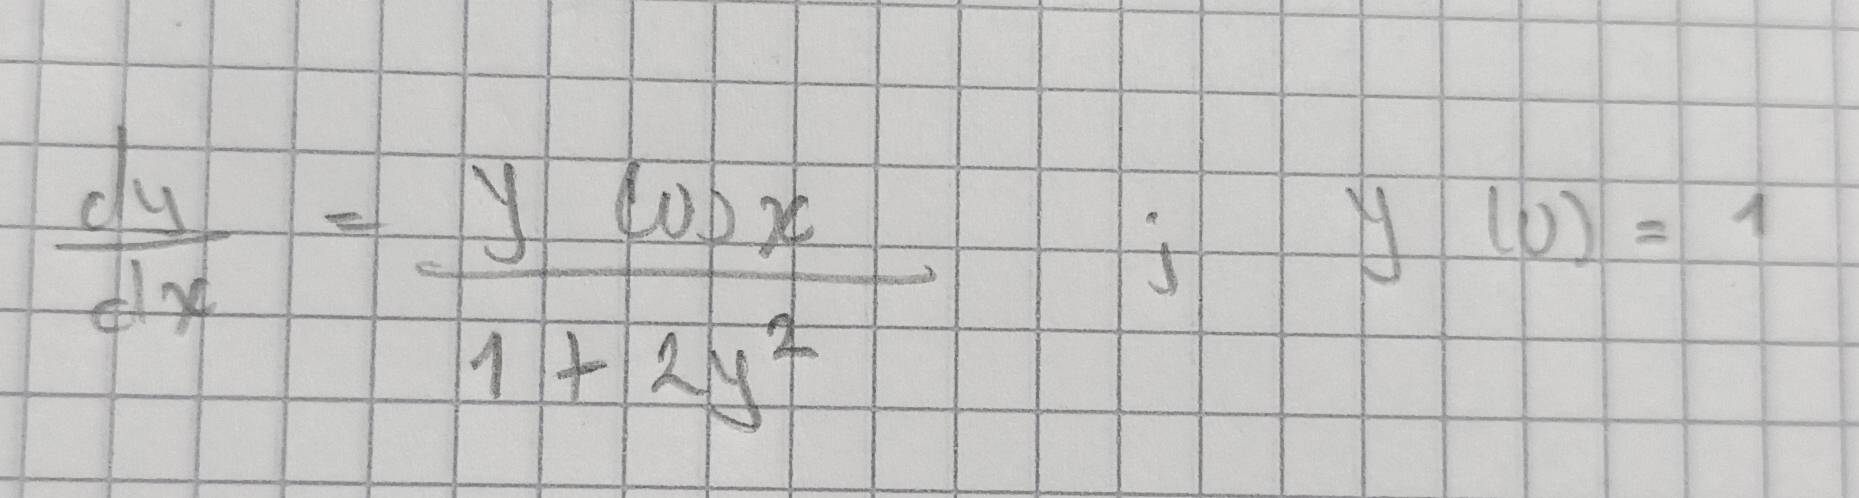 dy/dx = y cos x / 1 + 2y² ; y (0) = 1